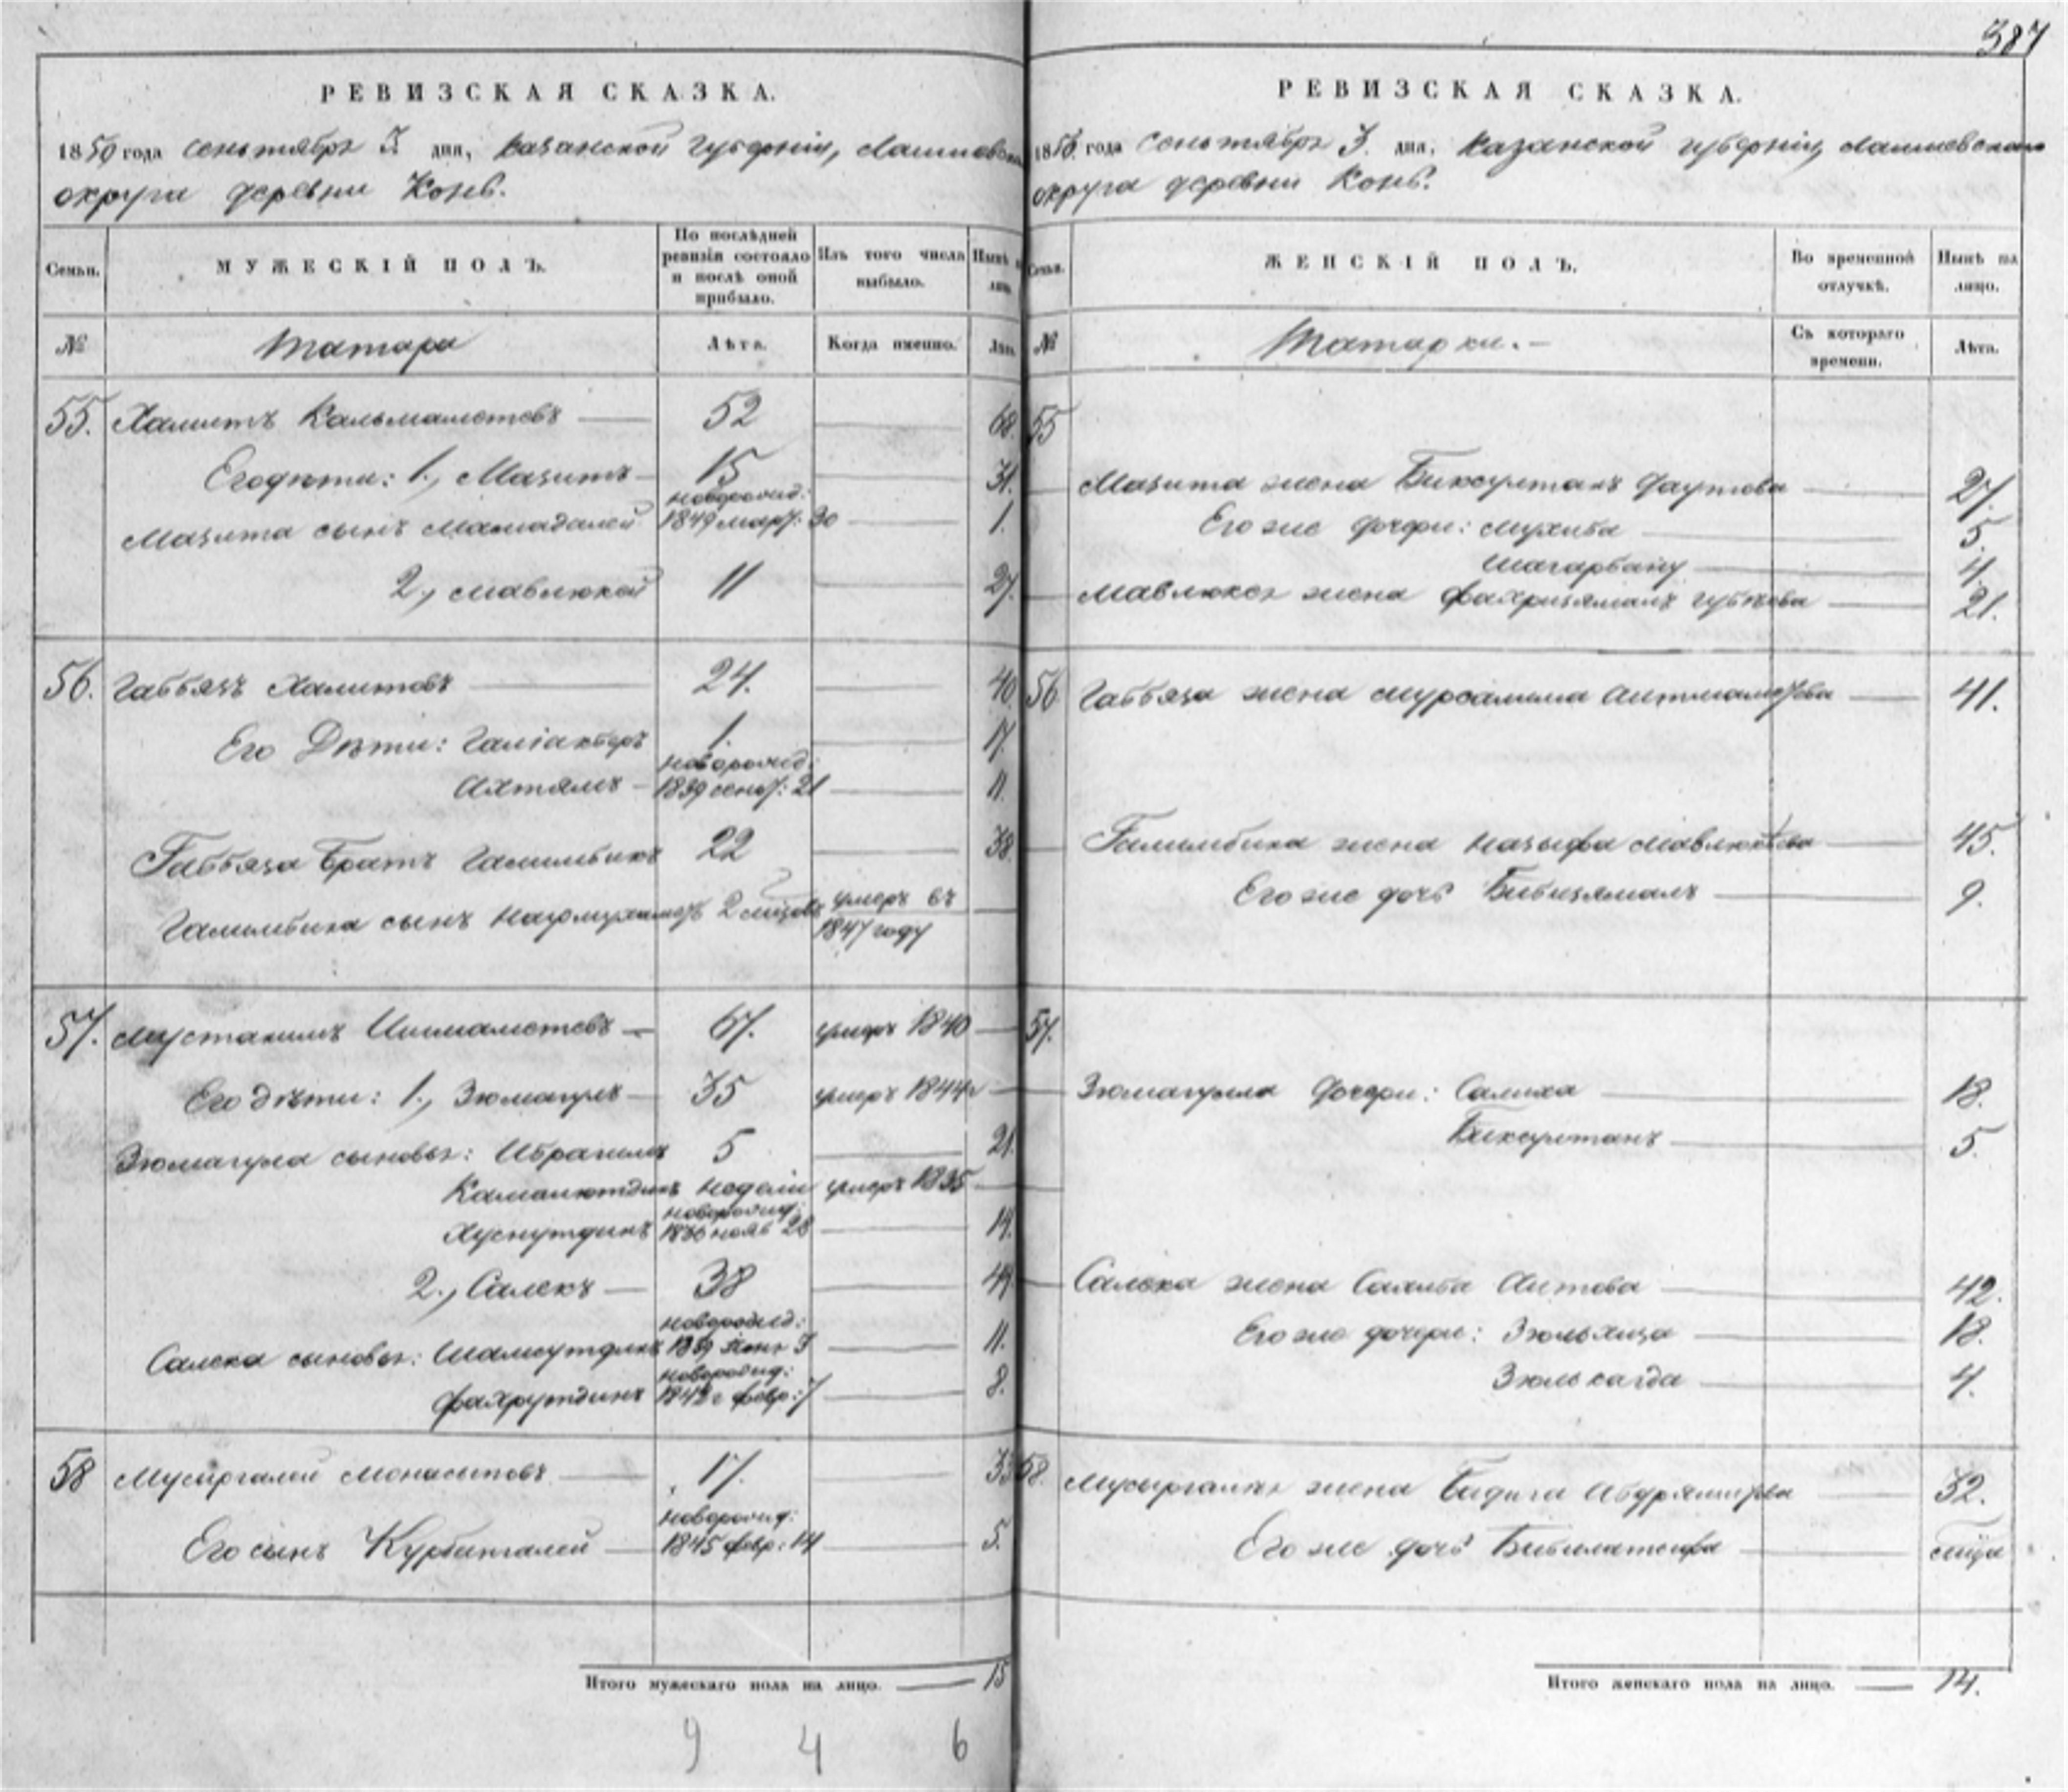 387
РЕВИЗСКАЯ СКАЗКА.
1850 года сентября 3 дня, Казанской губерніи, Лаишевска
округа деревни Конь.
Семьи. МУЖЕСКІЙ ПОЛЪ. По послѣдней ревизіи состояло и послѣ оной прибыло. Изъ того числа выбыло. Нынѣ на лицо.
№ Татара Лѣта. Когда именно. Лѣта.
55. Хамитъ Кальмаметевъ 52 68.
Его дѣти: 1., Мазитъ 15 31.
новорожд:
Мазита сынъ Мамадалей 1849 март: 30 1.
2., Мавлюкей 11 27.
56. Габбязъ Хамитовъ 24. 40
Его Дѣти: Галіакберъ 1. 17.
новорожд:
Ахтямъ 1839 сент: 21 11.
Габбяза братъ Галимбикъ 22 38.
Галимбика сынъ Наурмухаметъ 2 мѣсяцовъ умеръ въ
1847 году
57. Мустакимъ Ишмаметевъ 67. умеръ 1840
Его дѣти: 1., Зюмагулъ 35 умеръ 1844 г
Зюмагула сыновья: Ибрагимъ 5 21.
Камалютдинъ недели умеръ 1835
новорожд:
Хуснутдинъ 1836 нояб 28 14.
2., Салекъ 38 49
новорожд:
Салека сыновья: Шамсутдинъ 1839 3 11.
новорожд:
Фахрутдинъ 1842 г февр: 7 8.
58 Мусыргалей Монаситовъ 17. 33
новорожд:
Его сынъ Курбангалей 1845 февр: 14 5.
Итого мужескаго пола на лицо. 15
9 4 6
РЕВИЗСКАЯ СКАЗКА.
1850 года сентября 3 дня, Казанской губерніи, Лаишевскаго
округа деревни Конь.
Семьи. ЖЕНСКІЙ ПОЛЪ. Во временной отлучкѣ. Нынѣ на лицо.
№ Татарки. Съ котораго времени. Лѣта.
55
Мазита жена Биксултанъ Даутова 27.
Его же дочери: Мухиба 5.
Шагарбану 4.
Мавлюкея жена Фахризямалъ Губеева 21.
56 Габбяза жена Мурсалима Аитмаметева 41.
Галимбика жена Назыфа Мавлюкеева 45.
Его же дочь Бибизямалъ 9.
57.
Зюмагула дочери: Салиха 18.
Биксултанъ 5.
Салека жена Салиба Аитова 42.
Его же дочери: Зюльхиза 18.
Зюлькагда 4.
58. Мусыргалея жена Бадига Абдрашитова 32.
Его же дочь Бибилатифа
Итого женскаго пола на лицо. 14.